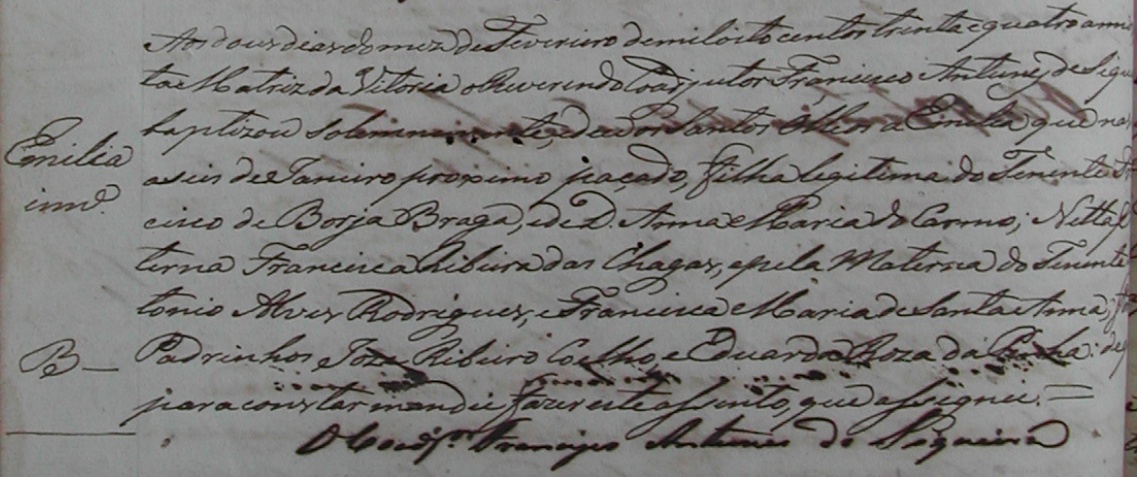 Aos dous dias do mez de Fevereiro de mil oito centos trinta e quatro annos
ta Matriz da Vitoria o Reverendo Coadjutor Francisco Antunes de Siqu
baptizou Solemnemente, e deo os Santos Oleos a Emilia que nas
Emilia
a seis de Janeiro proximo paçado, filha legitima do Tenente Fr
inn.e
cisco de Borja Braga, e de D. Anna Maria do Carmo; Netta
terna Francisca Ribeira das Chagas, e pela Materna do Tenente
tonio Alves Rodrigues, e Francisca Maria de Santa Anna;
B—
Padrinhos Joze Ribeiro Coelho, e Eduarda Roza da Cunha: de
para constar mandei fazer este assento, que assignei. =
O Coadj.or Francisco Antunes de Siqueira